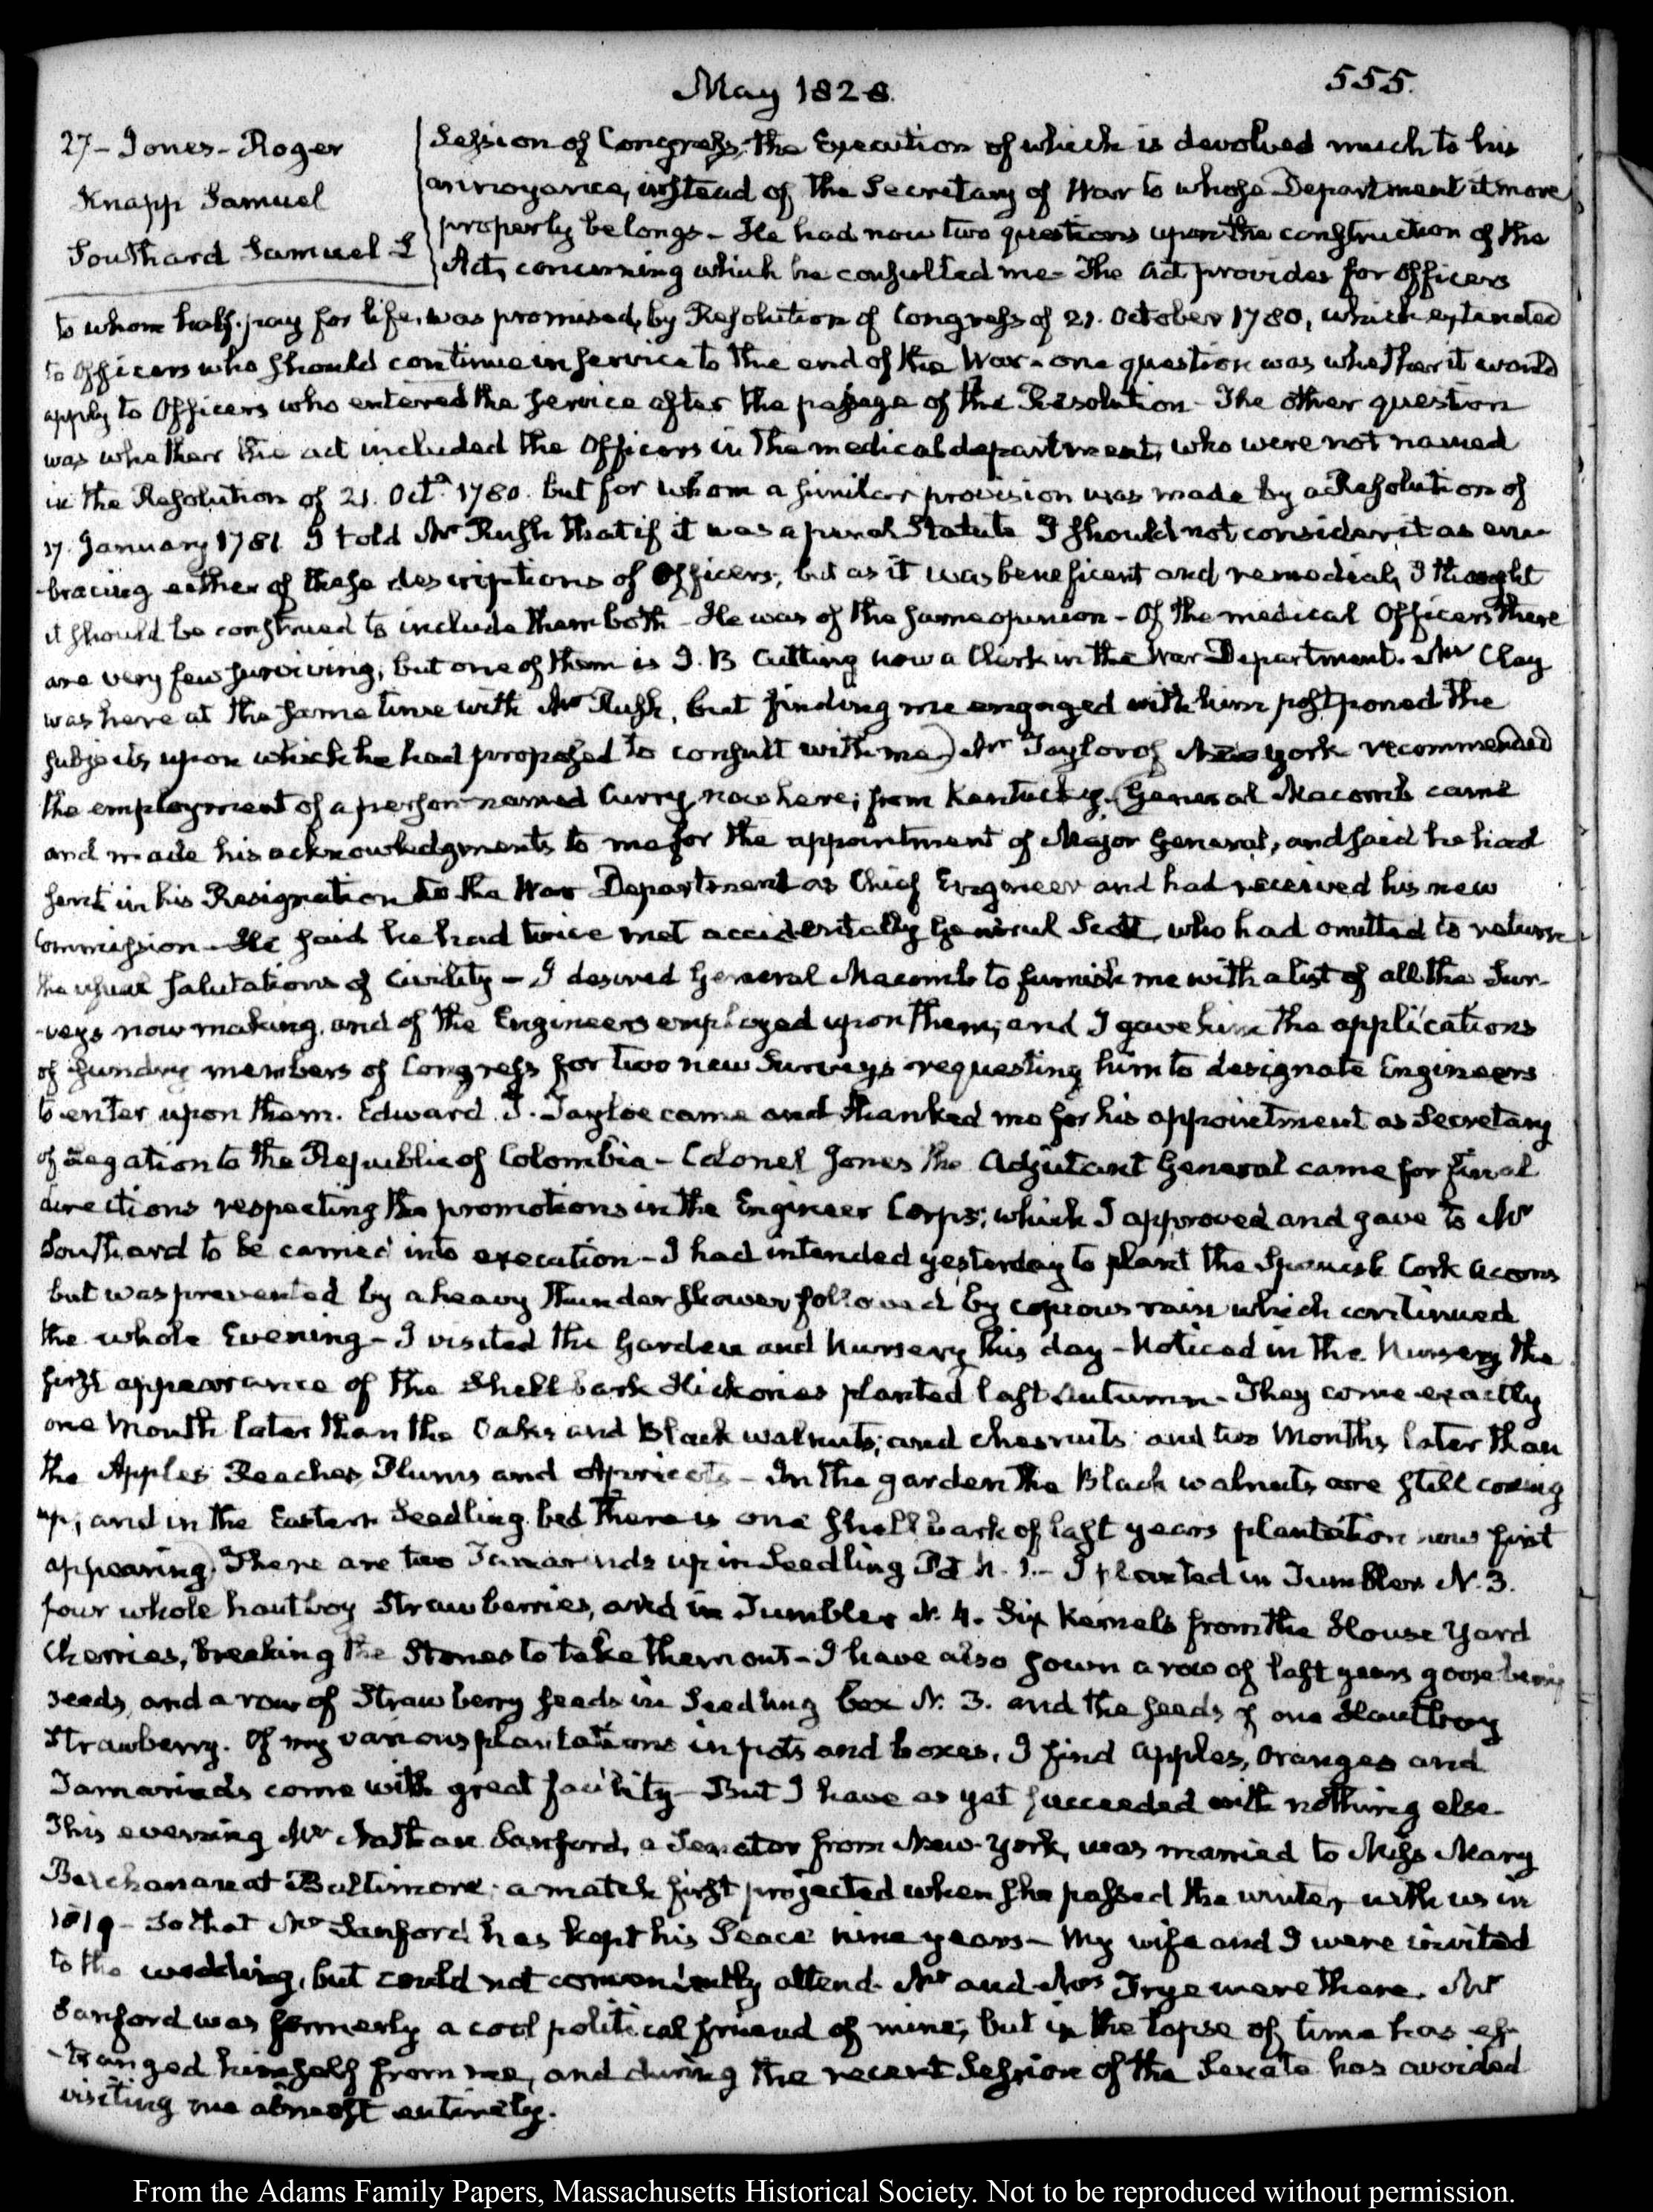 May 1828.
555.
27 - Jones - Roger
Knapp Samuel
Southard Samuel L
Session of Congress, the Execution of which is devolved much to his
annoyance, instead of the Secretary of War to whose Department it more
properly belongs - He had now two questions upon the construction of the
Act, concerning which he consulted me - The Act provides for Officers
to whom half-pay for life, was promised, by Resolution of Congress of 21. October 1780, which extended
to Officers who should continue in service to the end of the War - one question was whether it would
apply to Officers who entered the service after the passage of the Resolution - The other question
was whether the act included the Officers in the medical department, who were not named
in the Resolution of 21. Octr. 1780. but for whom a similar provision was made by a Resolution of
17. January 1781. I told Mr Rush that if it was a penal Statute I should not consider it as em-
-bracing either of these descriptions of Officers; but as it was beneficent and remedial, I thought
it should be construed to include them both - He was of the same opinion - Of the medical Officers there
are very few surviving; but one of them is J. B. Cutting now a Clerk in the War Department. Mr Clay
was here at the same time with Mr Rush, but finding me engaged with him postponed the
subjects upon which he had proposed to consult with me) Mr Taylor of New York recommended
the employment of a person named Curry, now here, from Kentucky. (General Macomb came
and made his acknowledgments to me for the appointment of Major General, and said he had
sent in his Resignation to the War Department as Chief Engineer and had received his new
Commission - He said he had twice met accidentally General Scott, who had omitted to return
the usual salutations of Civility - I desired General Macomb to furnish me with a list of all the Sur-
-veys now making, and of the Engineers employed upon them; and I gave him the applications
of sundry members of Congress for two new Surveys requesting him to designate Engineers
to enter upon them. Edward T. Tayloe came and thanked me for his appointment as Secretary
of Legation to the Republic of Colombia - Colonel Jones the Adjutant General came for final
directions respecting the promotions in the Engineer Corps; which I approved and gave to Mr
Southard to be carried into execution - I had intended yesterday to plant the Spanish Cork acorns
but was prevented by a heavy Thunder shower followed by copious rain which continued
the whole Evening - I visited the Garden and Nursery this day - Noticed in the Nursery the
first appearance of the Shellbark Hickories planted last Autumn - They come exactly
one Month later than the Oaks and Black walnuts; and chesnuts and two Months later than
the Apples Peaches Plums and Apricots - In the garden the Black walnuts are still coming
up; and in the Eastern Seedling bed there is one shellbark of last years plantation now first
appearing) There are two Tamarinds up in Seedling Pot N. 1. - I planted in Tumbler N. 3.
four whole hautboy Strawberries, and in Tumbler N. 4. Six Kernels from the House Yard
Cherries, breaking the Stones to take them out - I have also sown a row of last years gooseberry
seeds, and a row of Strawberry seeds in Seedling box N. 3. and the seeds of one Hautboy
Strawberry. Of my various plantations in pots and boxes, I find Apples, Oranges and
Tamarinds come with great facility - But I have as yet succeeded with nothing else.
This evening Mr Nathan Sanford, a Senator from New-York, was married to Miss Mary
Buchanan at Baltimore; a match first projected when she passed the winter with us in
1819 - So that Mr Sanford has kept his Peace nine years - My wife and I were invited
to the wedding, but could not conveniently attend. Mr and Mrs Frye were there. Mr
Sanford was formerly a cool political friend of mine; but in the lapse of time has es-
-tranged himself from me, and during the recent Session of the Senate has avoided
visiting me almost entirely.
From the Adams Family Papers, Massachusetts Historical Society. Not to be reproduced without permission.